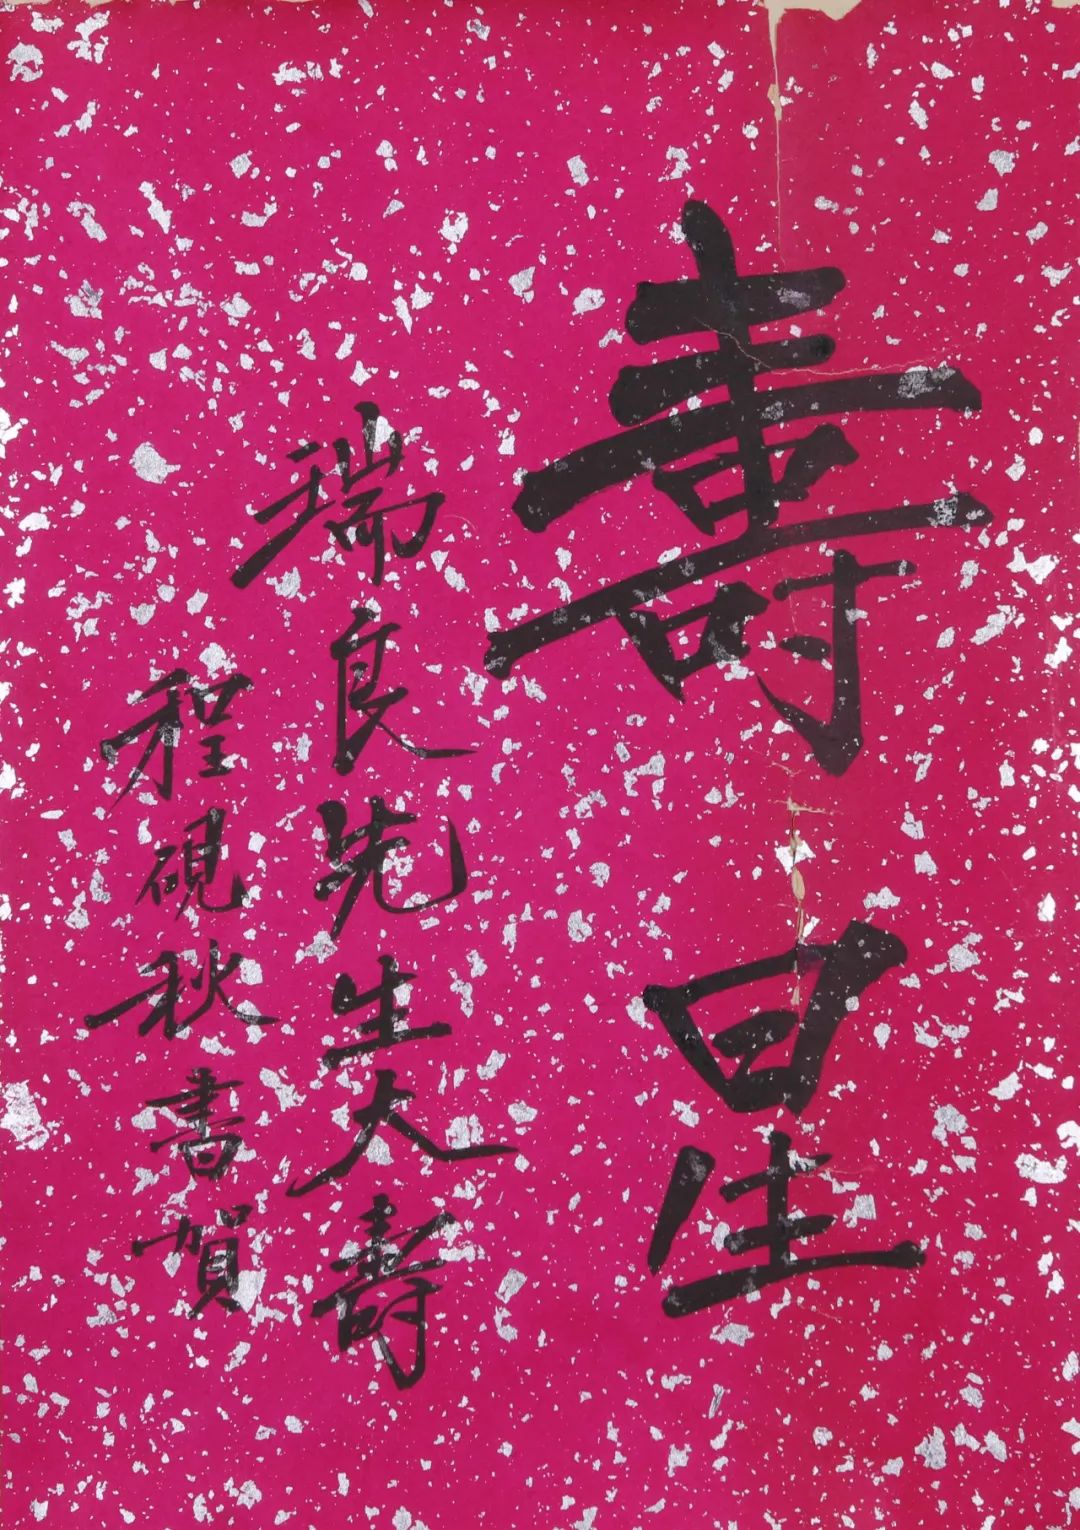 壽星
瑞良先生大壽
程硯秋書賀